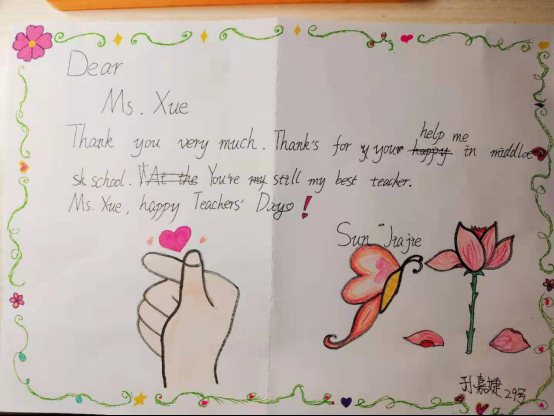 Dear
Ms. Xue
Thank you very much. Thank's for y your happy help me in middle
sk school. At the You're my still my best teacher.
Ms. Xue, happy Teachers' Day!
Sun Jiajie
孙嘉婕 29号